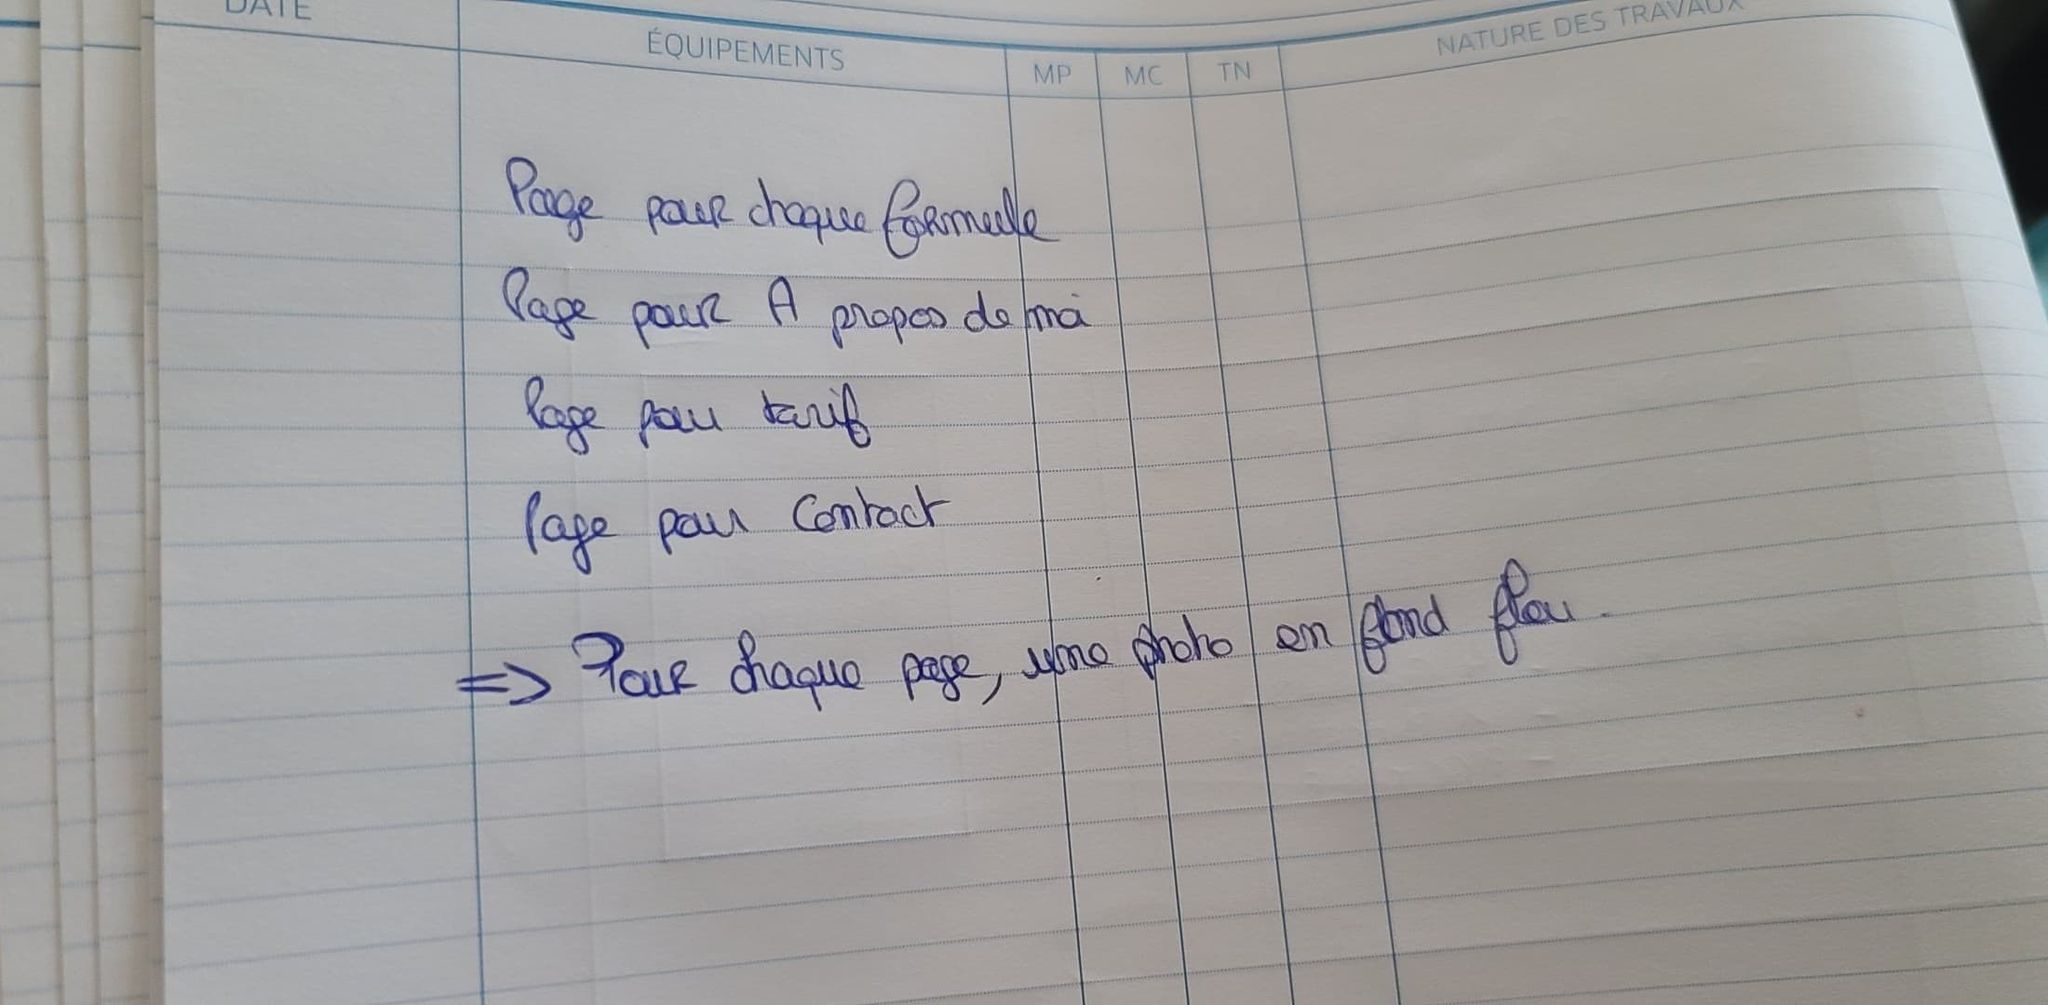 DATE
ÉQUIPEMENTS
MP
MC
TN
NATURE DES TRAVAUX
Page pour chaque formule
Page pour A propos de moi
Page pour tarif
Page pour Contact
=> Pour chaque page, une photo en fond flou.